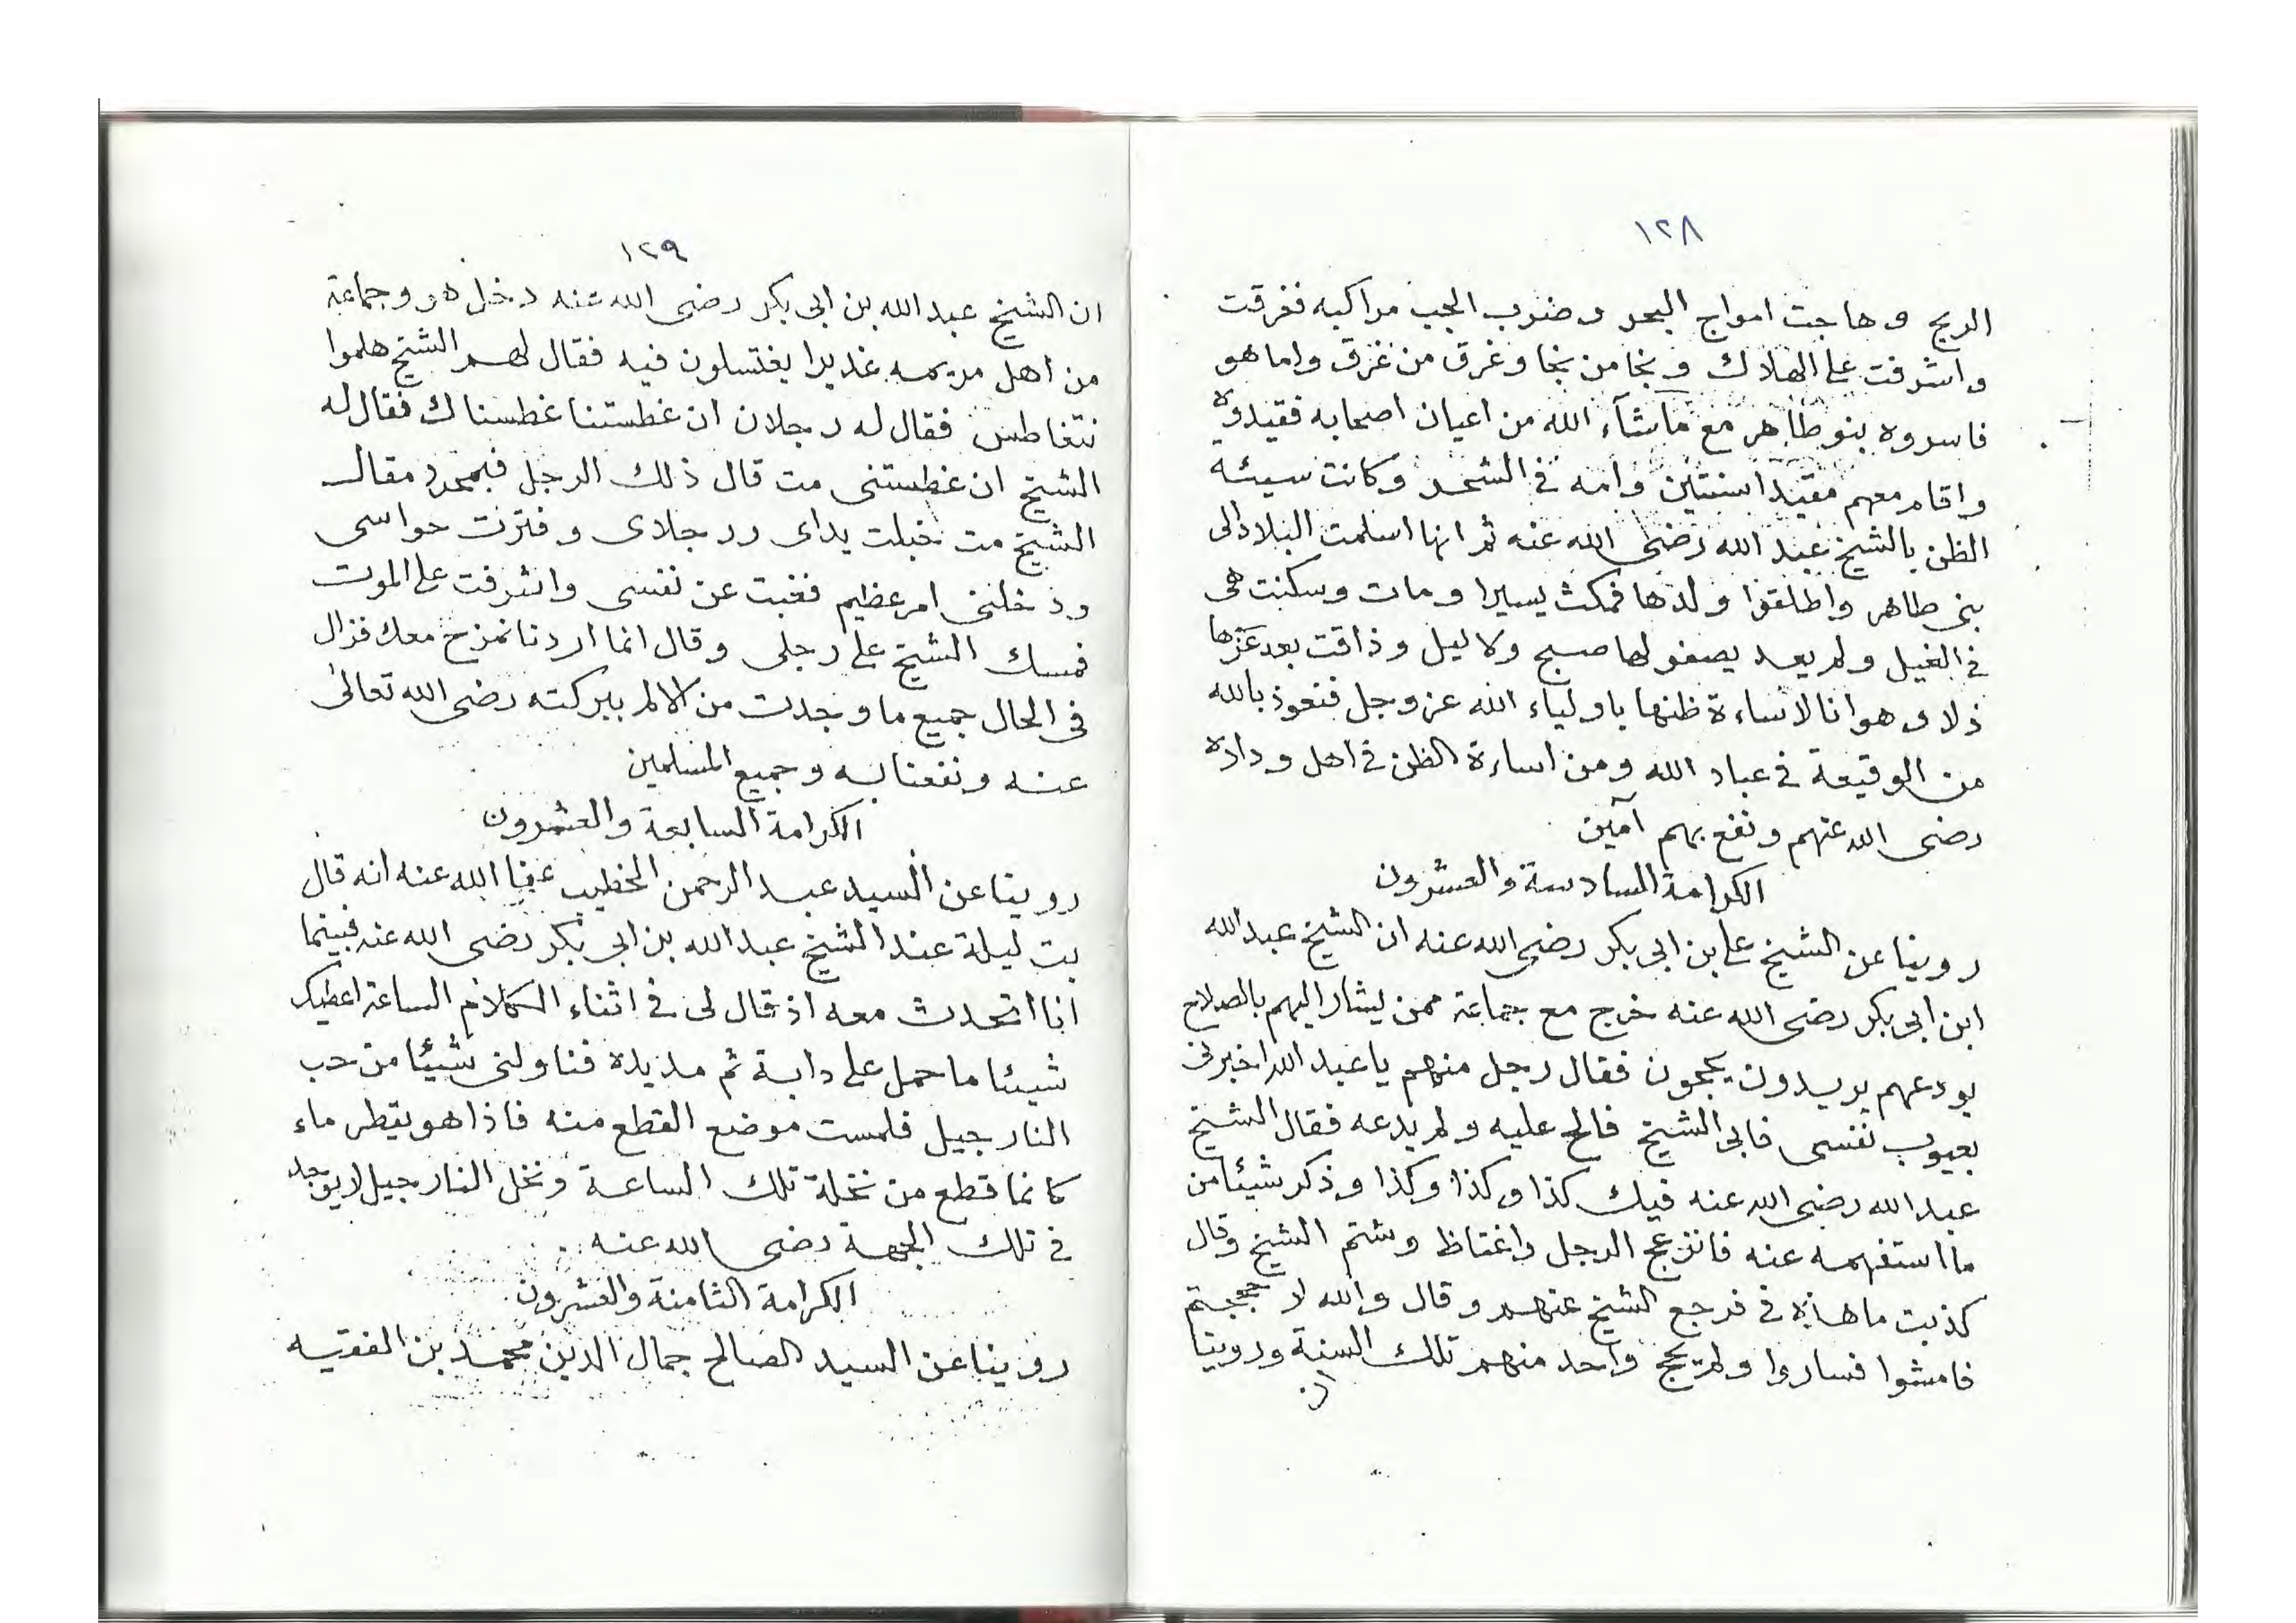 ١٢٨
الريح وهاجت امواج البحر وضرب الجب مراكبه فغرقت
واشرفت على الهلاك ونجا من نجا وغرق من غرق واما هو
فاسروه بنو طاهر مع ماشآء الله من اعيان اصحابه فقيدوه
واقام معهم مقيدا سنتين وامه في الشحر وكانت سيئه
الظن بالشيخ عبد الله رضى الله عنه ثم انها اسلمت البلاد الى
بنى طاهر واطلقوا ولدها فمكث يسيرا ومات وسكنت هى
في الغيل ولم يعد يصفو لها صبح ولا ليل وذاقت بعد عزها
ذلا وهوانا لاساءة ظنها باولياء الله عز وجل فنعوذ بالله
من الوقيعة في عباد الله ومن اساءة الظن في اهل وداده
رضى الله عنهم ونفع بهم آمين
الكرامة السادسة والعشرون
روينا عن الشيخ على بن ابى بكر رضى الله عنه ان الشيخ عبد الله
ابن ابى بكر رضى الله عنه خرج مع جماعة ممن يشار اليهم بالصلاح
يودعهم يريدون يحجون فقال رجل منهم يا عبد الله اخبرنى
بعيوب نفسى فابى الشيخ فالح عليه ولم يدعه فقال الشيخ
عبد الله رضى الله عنه فيك كذا وكذا وكذا وذكر شيئا من
ما استفهمه عنه فانزعج الرجل واغتاظ وشتم الشيخ وقال
كذبت ما هذه في فرجع الشيخ عنهم وقال والله لا حججتم
فامشوا فساروا ولم يحج واحد منهم تلك السنة وروينا
ان
١٢٩
ان الشيخ عبد الله بن ابى بكر رضى الله عنه دخل هو وجماعة
من اهل مريمه غديرا يغتسلون فيه فقال لهم الشيخ هلموا
نتغاطس فقال له رجلان ان غطستنا غطسناك فقال له
الشيخ ان غطستنى مت قال ذلك الرجل فبمجرد مقال
الشيخ مت نخبلت يداى ورجلاى وفترت حواسى
ودخلنى امر عظيم فغبت عن نفسى واشرفت على الموت
فمسك الشيخ على رجلى وقال انما اردنا نمزح معك فزال
في الحال جميع ما وجدت من الالم ببركته رضى الله تعالى
عنه ونفعنا به وجميع المسلمين
الكرامة السابعة والعشرون
روينا عن السيد عبد الرحمن الخطيب عفا الله عنه انه قال
بت ليلة عند الشيخ عبد الله بن ابى بكر رضى الله عنه فبينما
انا اتحدث معه اذ قال لى في اثناء الكلام الساعة اعطيك
شيئا ما حمل على دابة ثم مد يده فناولنى شيئا من حب
النارجيل فلمست موضع القطع منه فاذا هو يقطر ماء
كانما قطع من نخلة تلك الساعة ونخل النارجيل لا يوجد
في تلك الجهة رضى الله عنه
الكرامة الثامنة والعشرون
روينا عن السيد الصالح جمال الدين محمد بن الفقيه